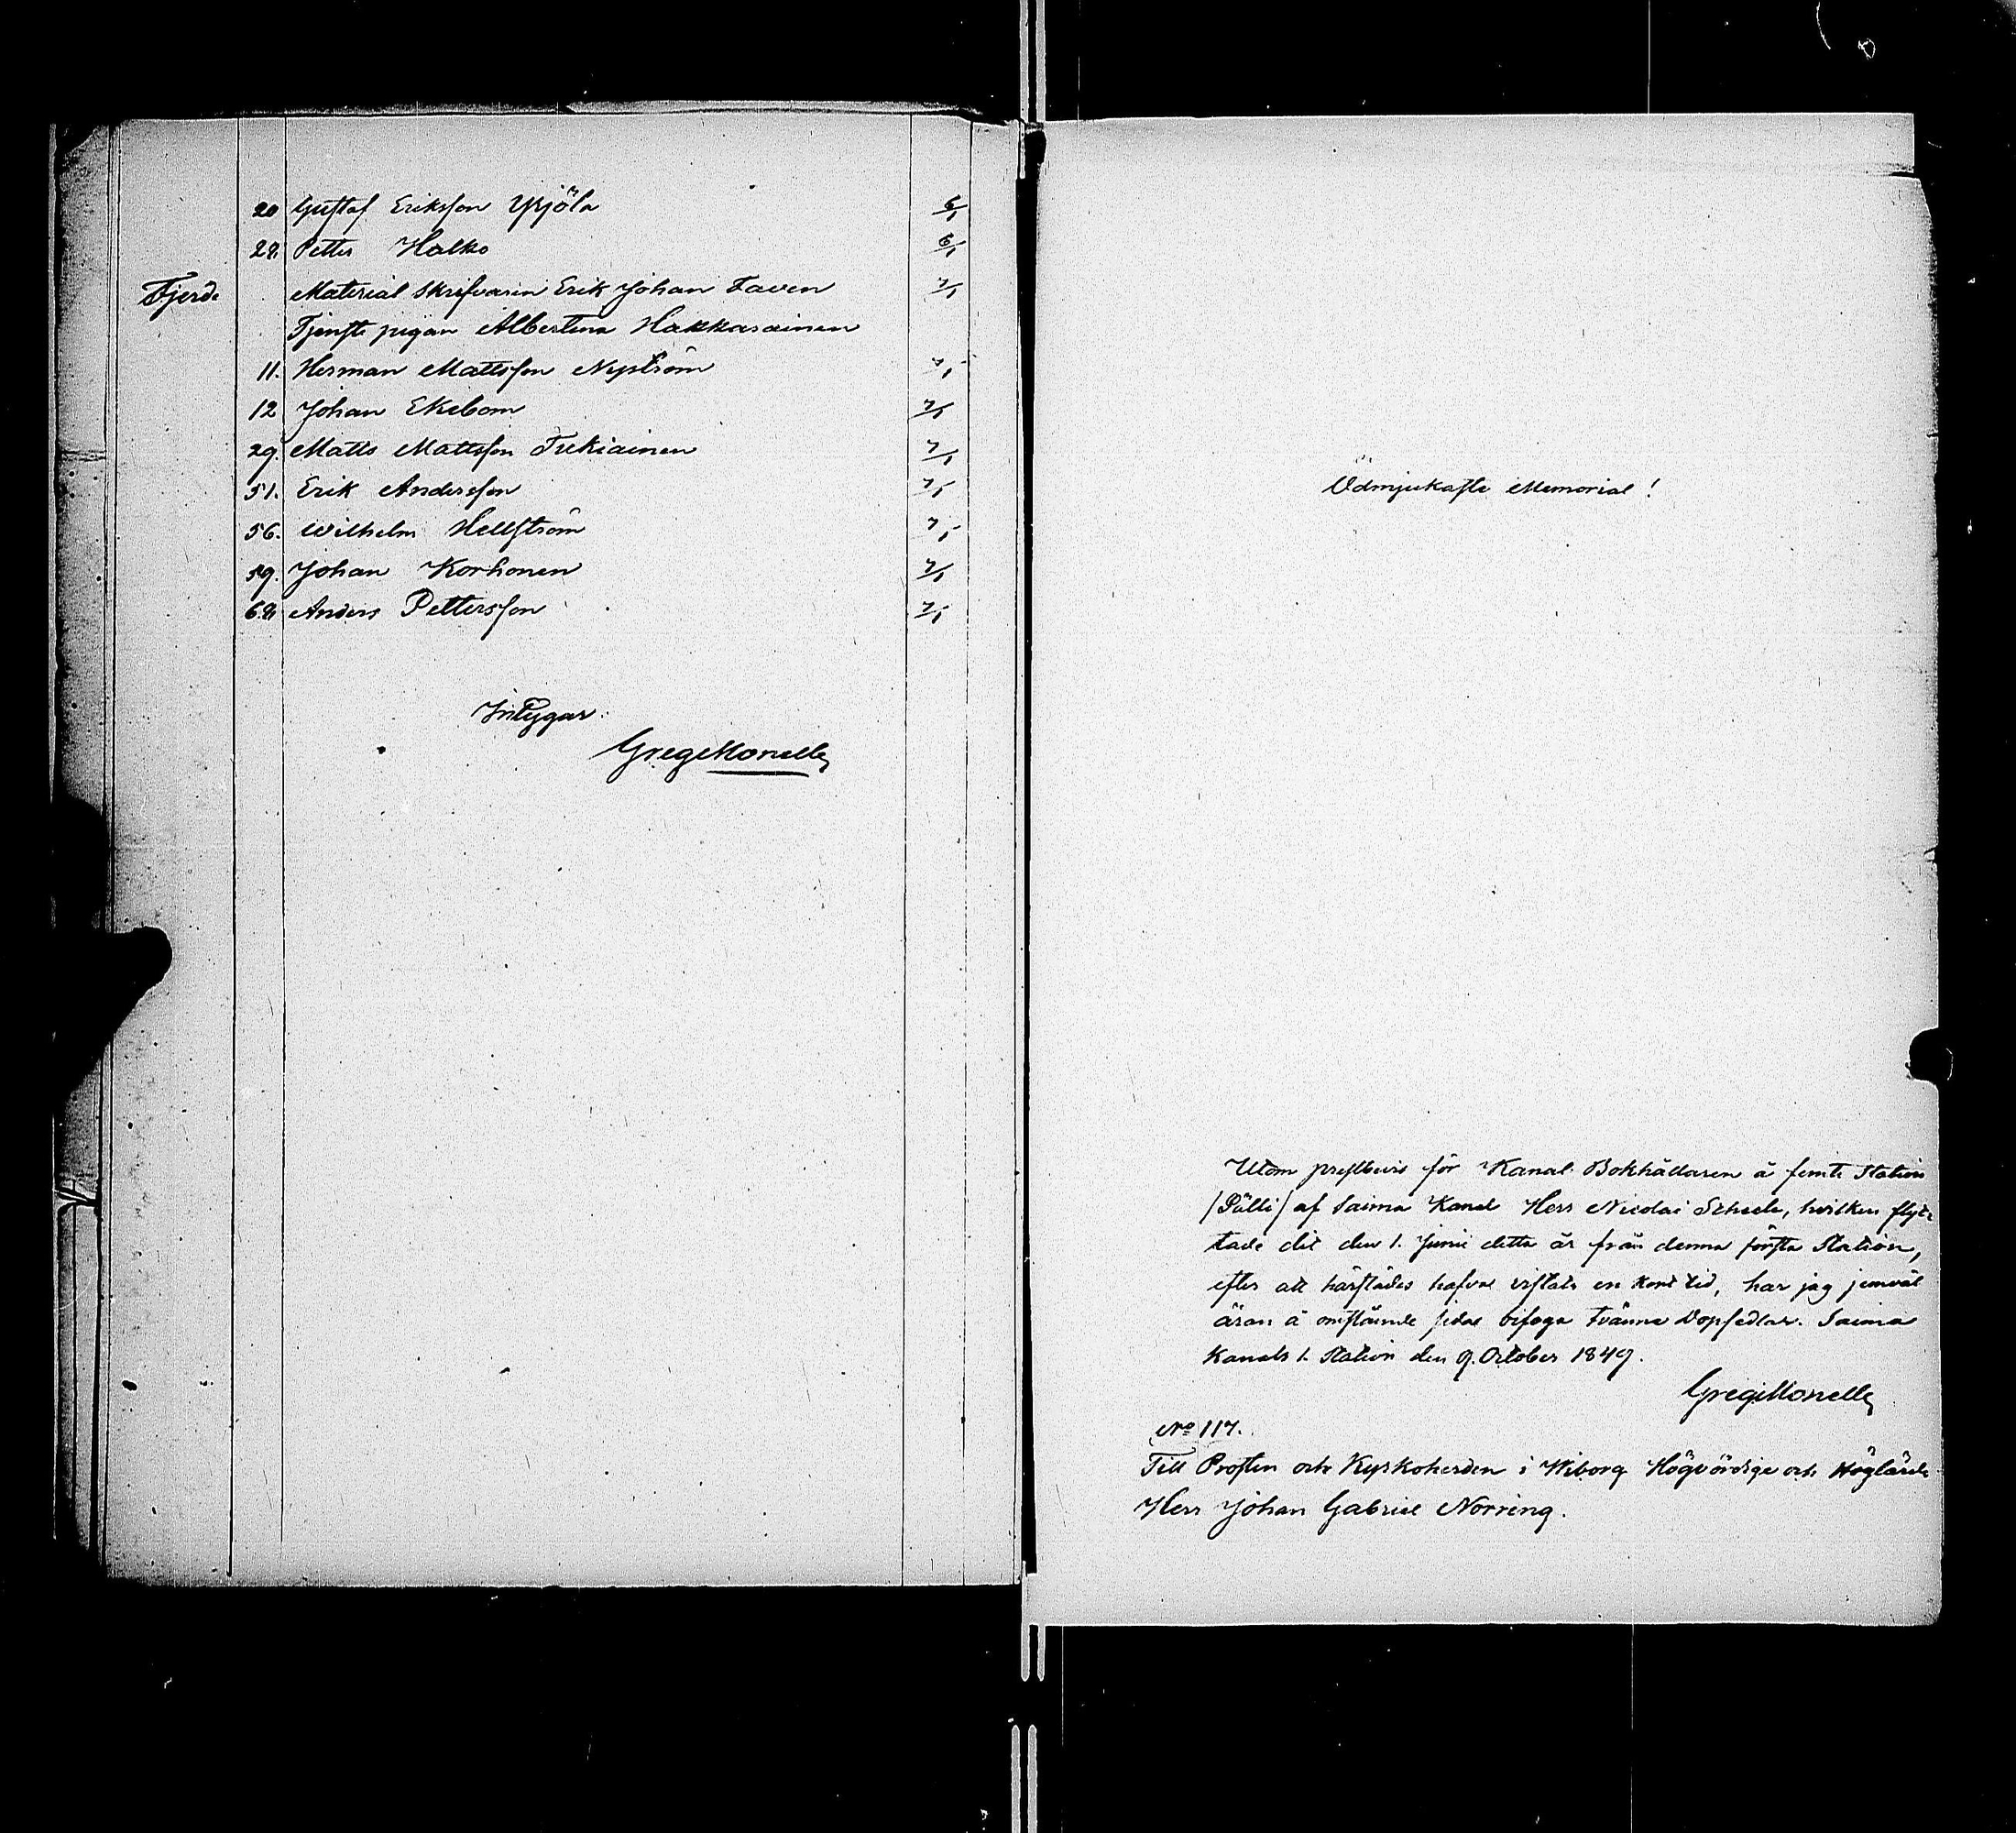 20 Gustaf Eriksson Yrjölä 6/1
28. Petter Halko 6/1
Fjerde Material skrifvarin Erik Johan Faven 7/1
Tjenste pigan Albertina Hakkarainen
11. Herman Mattsson Nyström 7/1
12 Johan Ekebom 7/1
29. Matts Mattsson Tukiainen 7/1
51. Erik Andersson 7/1
56. Wilhelm Hellström 7/1
59. Johan Korhonen 7/1
68. Anders Pettersson 7/1
Intygar
Greg Monelle
Ödmjukaste Memorial!
Utom prestbevis för Kanal Bokhållaren å femte Station
/Pälli/ af Saima Kanal Herr Nicolai Scheele, hvilken flyt-
tade dit den 1. Junii detta år från denna första Station,
efter att härstädes hafva vistats en kort tid, har jag jemväl
äran å omstående sidor bifoga tvänne Dopsedlar. Saima
Kanals 1. Station den 9. October 1849.
Greg Monelle
No 117.
Till Prosten och Kyrkoherden i Wiborg Högvördige och Höglärde
Herr Johan Gabriel Norring.